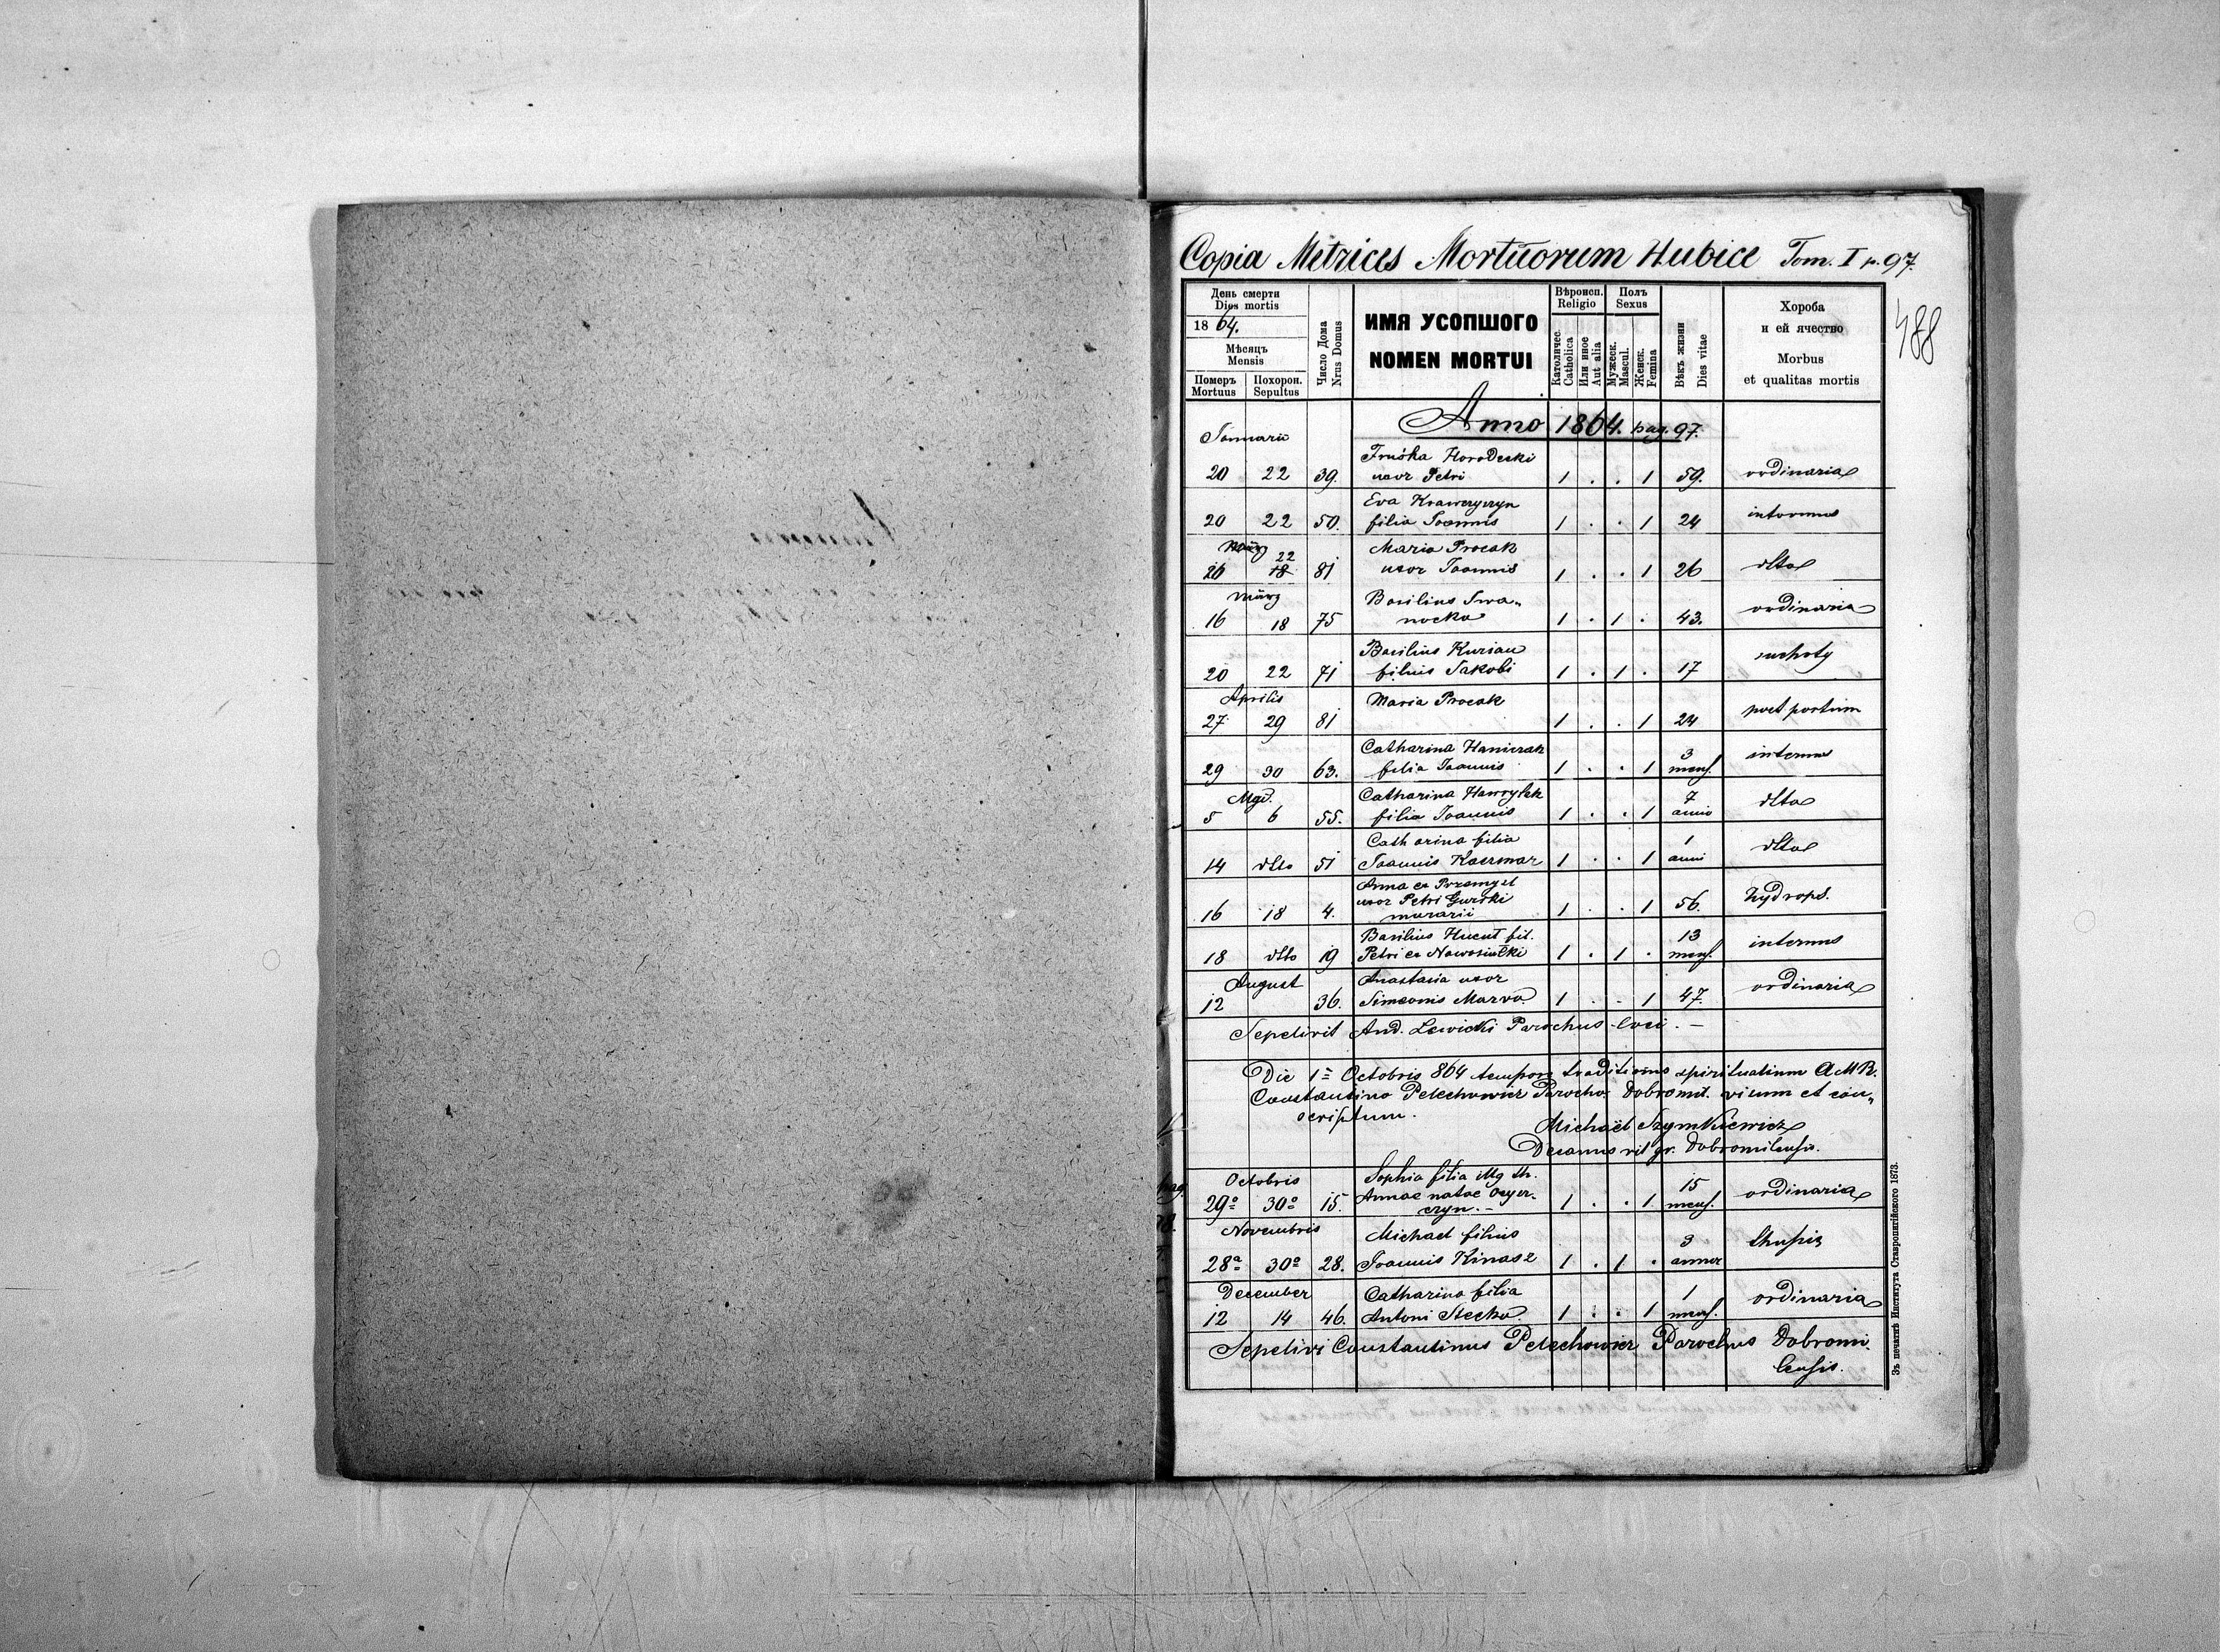 Copia Metrices Mortuorum Hubice Tom. I p. 97.
488
День смерти
Dies mortis
1864.
Мѣсяцъ
Mensis
Померъ
Mortuus
Похорон.
Sepultus
Число Дома
Nrus Domus
ИМЯ УСОПШОГО
NOMEN MORTUI
Вѣроисп.
Religio
Католичес.
Catholica
Или иное
Aut alia
Полъ
Sexus
Мужеск.
Mascul.
Женск.
Femina
Вѣкъ жизни
Dies vitae
Хороба
и ей ячество
Morbus
et qualitas mortis
Anno 1864. pag. 97.
Januarii
Fruśka Horodecki
20 22 39. uxor Petri 1 . . 1 59. ordinaria
Eva Krawczyszyn
20 22 50. filia Joannis 1 . . 1 24
März 22
Maria Procak
20 18 81 uxor Joannis 1 . . 1 26 dtto
März
Basilius Iwa„
16 18 75 nocko 1 . 1 . 43. ordinaria
Basilius Kurian
20 22 71 filius Jakobi 1 . 1 . 17 suchoty
Aprilis
Maria Procak
27 29 81 1 . . 1 24 post partum
Catharina Haniczak 3
29 30 63. filia Joannis 1 . . 1 mens. interna
Catharina Hawryłek 7
5 6 55. filia Joannis 1 . . 1 annor dtto
Catharina filia 1
14 dtto 51 Joannis Kaczmar 1 . . 1 anni dtto
Anna ex Przemysl
uxor Petri Gurski
16 18 4. murarii 1 . . 1 56. hydrops.
Basilius Hucuł fil. 13
18 dtto 19 Petri ex Nowosiułki 1 . 1 . mens. internus
August
Anastasia uxor
12 36. Simeonis Marvo 1 . . 1 47. ordinaria
Sepelivit And. Lewicki Parochus loci. —
Die 1ª Octobris 864 tempore traditionis spiritualium AMR.
Constantino Pelechowicz Parocho Dobromil. visum et con„
scriptum.
Michaël Szymkiewicz
Decanus rit gr. Dobromilensis.
pag.
98.
Octobris
Sophia filia illg th. 15
29ª 30ª 15. Annae natae 1 . . 1 mens. ordinaria
czyn. —
Novembris
Michael filius 3
28ª 30ª 28. Joannis Kinasz 1 . 1 . annor
December
Catharina filia 1
12 14 46. Antoni Stecko 1 . . 1 mens. ordinaria
Sepelivi Constantinus Pelechowicz Parochus Dobromi
lensis.
Зъ печатнѣ Института Ставропигійского 1873.